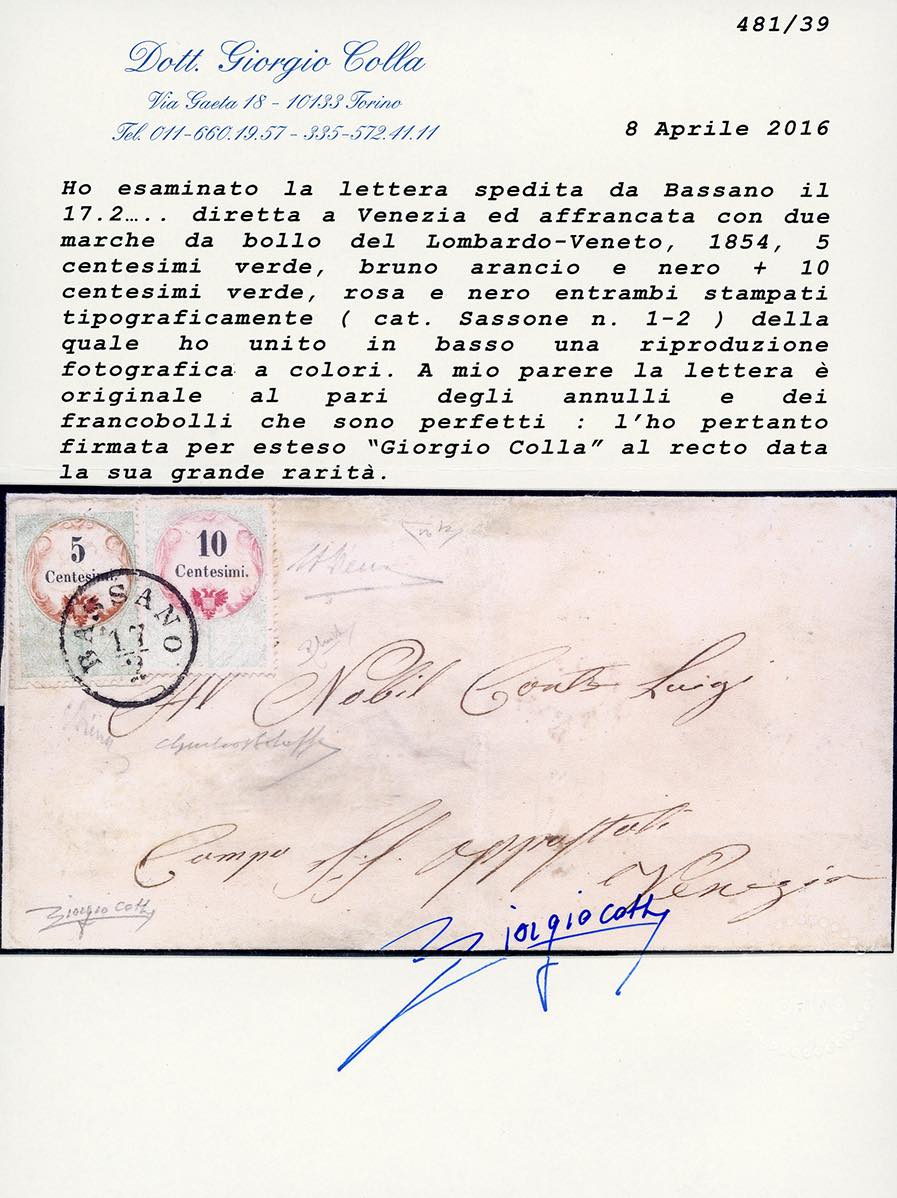 481/39
Dott. Giorgio Colla
Via Gaeta 18 - 10133 Torino
Tel. 011-660.19.57 - 335-572.41.11
8 Aprile 2016
Ho esaminato la lettera spedita da Bassano il
17.2….. diretta a Venezia ed affrancata con due
marche da bollo del Lombardo-Veneto, 1854, 5
centesimi verde, bruno arancio e nero + 10
centesimi verde, rosa e nero entrambi stampati
tipograficamente ( cat. Sassone n. 1-2 ) della
quale ho unito in basso una riproduzione
fotografica a colori. A mio parere la lettera è
originale al pari degli annulli e dei
francobolli che sono perfetti : l’ho pertanto
firmata per esteso “Giorgio Colla” al recto data
la sua grande rarità.
5
Centesimi.
10
Centesimi.
BASSANO
17
2
Al Nobil Conte Luigi
Campo S.S. Appostoli
Venezia
Giorgio Colla
Giorgio Colla